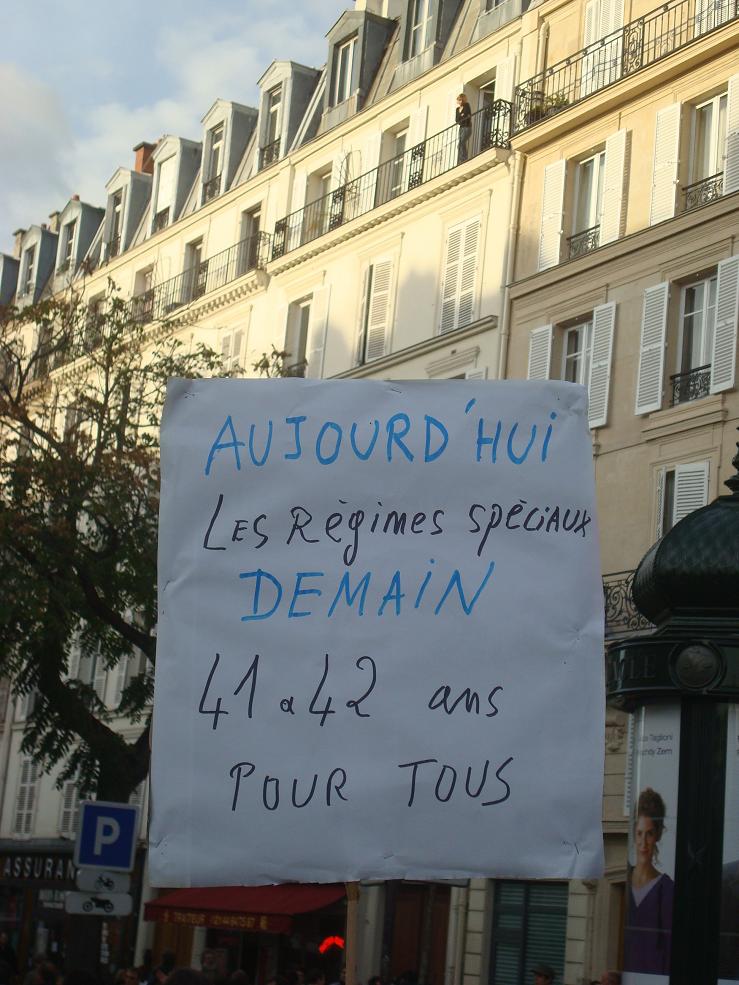 AUJOURD'HUi
LES Règimes spèciaux
DEMAiN
41 a 42 ans
POUR TOUS
P
ASSURAN
TRAITEUR
Taglioni
Zem